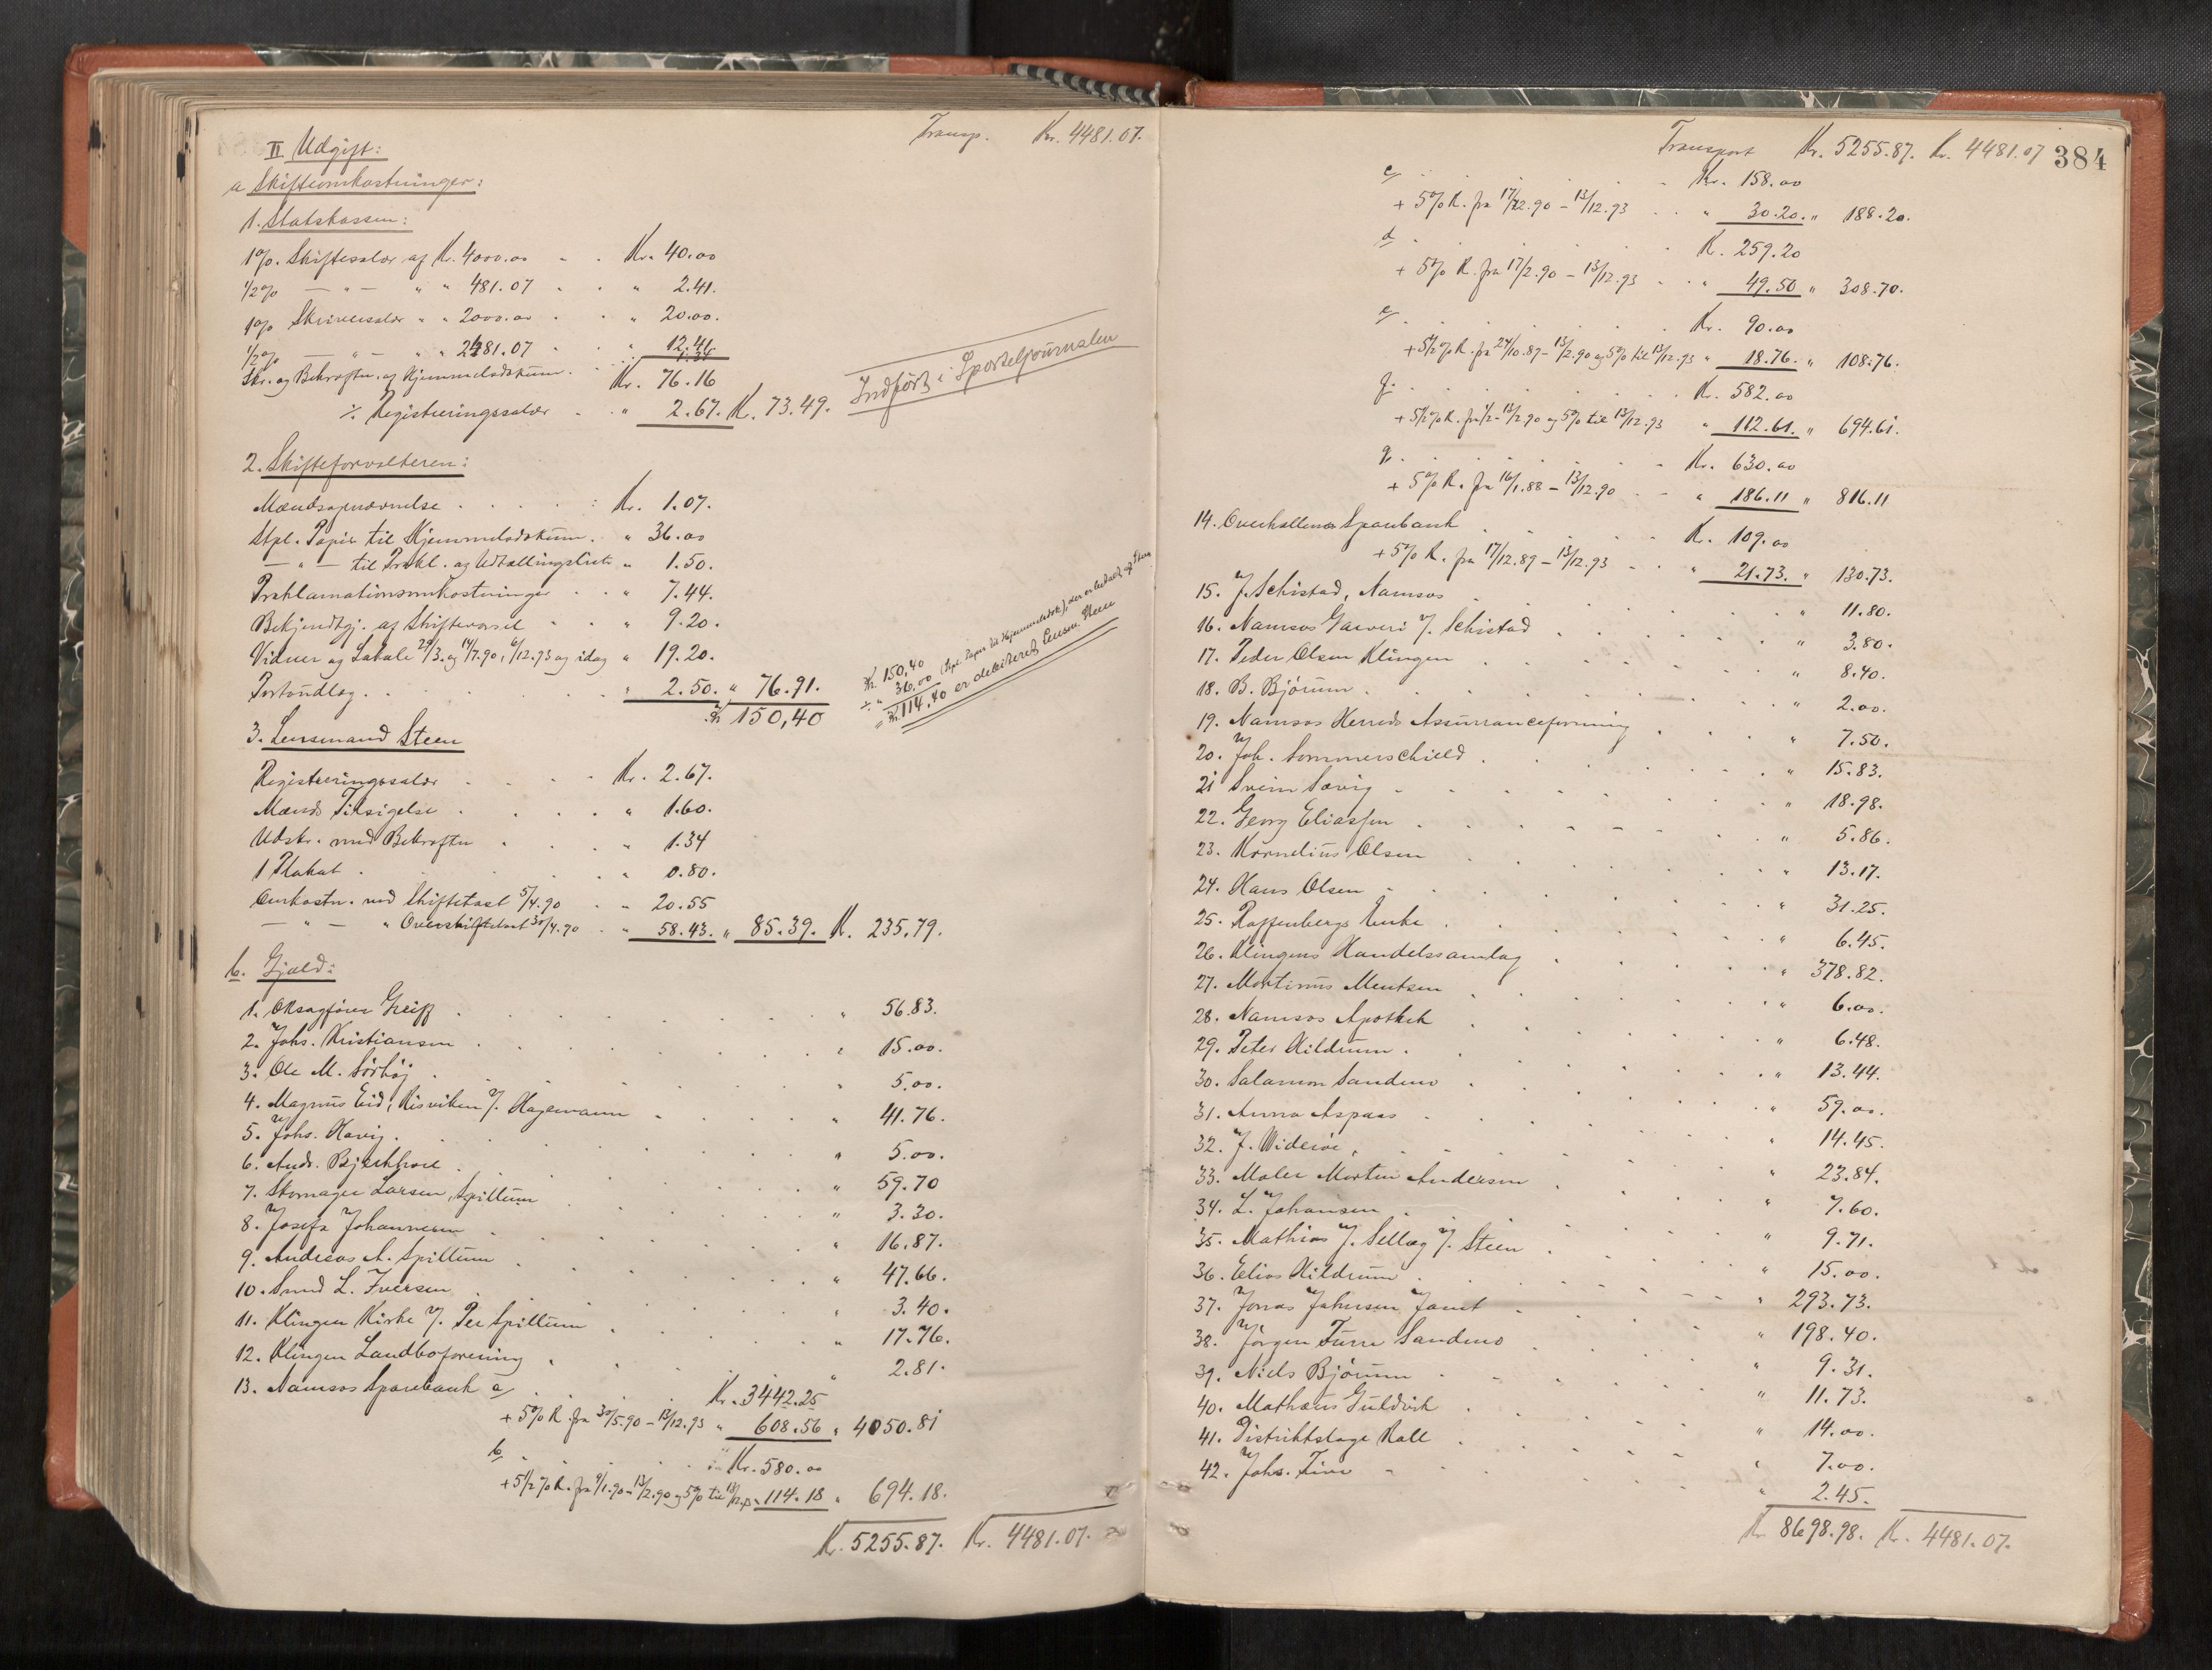 Transp. Kr. 4481.07.
II Udgift:
a Skifteomkostninger:
1. Statskassen:
1% Skiftesalær af Kr. 4000.00 Kr. 40.00
1/2% — " — " " 481.07 " 2.41.
1% Skriversalær " " 2000.00 " 20.00.
1/2% — " — " " 2481.07 " 12.41
Skr. og Bekræftn. af Hjemmelsdokum. 1.34
Kr. 76.16
÷ Registreringssalær " 2.67. Kr. 73.49.
Indført i Sporteljournalen
2. Skifteforvalteren:
Mændsopnævnelse Kr. 1.07.
Stpl. Papir til Hjemmelsdokum. " 36.00
— " — til Prokl. og Udtællingsliste " 1.50.
Proklamationsomkostninger " 7.44.
Bekjendtgj. af Skiftevarsel " 9.20.
Vidner og Lokale 29/3. og 14/7.90, 6/12.93 og idag " 19.20.
Portoudlæg " 2.50. " 76.91.
Kr. 150,40
Kr. 150,40
÷ " 36,00 (Stpl. Papir til Hjemmelsdok.), der er betalt af Steen
= Kr. 114,40 er debiteret Lensm. Steen
3. Lensmand Steen
Registreringssalær Kr. 2.67.
Mænds Tilsigelse " 1.60.
Udskr. med Bekræftn " 1.34
1 Plakat " 0.80.
Omkostn. ved Skiftetaxt 5/4.90 " 20.55
— " — " Overskiftetaxt 30/4.90 " 58.43. " 85.39. Kr. 235.79.
b. Gjæld:
1. ORsagfører Greiff " 56.83.
2. Johs. Kristiansen " 15.00.
3. Ole M. Sørhøj " 5.00.
4. Magnus Eid, Risviken v/. Hagemann " 41.76.
5. Johs. Havig " 5.00.
6. Andr. Bjerkhoel " 59.70
7. Skomager Larsen, Spillum " 3.30.
8. Josefa Johannesen " 16.87.
9. Andreas A. Spillum " 47.66.
10. Smed L. Iversen " 3.40.
11. Klingen Kirke v/. Per Spillum " 17.76.
12. Klingen Landboforening " 2.81.
13. Namsos Sparebank a/ Kr. 3442.25
+ 5% R. fra 30/5.90 - 13/12.93 " 608.56 " 4050.81
b/ Kr. 580.00
+ 5 1/2 % R. fra 9/1.90 - 13/2.90 og 5% til 13/12.93 " 114.18 " 694.18.
Kr. 5255.87. Kr. 4481.07.
384
Transport Kr. 5255.87. Kr. 4481.07
c/ Kr. 158.00
+ 5% R. fra 17/2.90 - 13/12.93 " 30.20. " 188.20.
d Kr. 259.20
+ 5% R. fra 17/2.90 - 13/12.93 " 49.50 " 308.70.
e/ Kr. 90.00
+ 5 1/2 % R. fra 24/10.89 - 13/2.90 og 5% til 13/12.93 " 18.76. " 108.76.
f. Kr. 582.00
+ 5 1/2 % R. fra 1/2 - 13/2.90 og 5% til 13/12.93 " 112.61. " 694.61.
g. Kr. 630.00
+ 5% R. fra 16/1.88 - 13/12.90 " 186.11 " 816.11
14. Overhallens Sparebank Kr. 109.00
+ 5% R. fra 17/12.89 - 13/12.93 " 21.73. " 130.73.
15. J. Schistad, Namsos " 11.80.
16. Namsos Garveri v/. Schistad " 3.80.
17. Peder Olsen Klingen " 8.40.
18. B. Bjørum " 2.00.
19. Namsos Herreds Assuranceforening " 7.50.
20. Joh. Sommerschield " 15.83.
21 Svein Sævig " 18.98.
22. Georg Eliassen " 5.86.
23. Kornelius Olsen " 13.17.
24. Hans Olsen " 31.25.
25. Roffenbergs Enke " 6.45.
26. Klingens Handelssamlag " 378.82.
27. Mortinus Mentsen " 6.00.
28. Namsos Apothek " 6.48.
29. Peter Hildrum " 13.44.
30. Salamon Sandmo " 59.00.
31. Anna Aspaas " 14.45.
32. J. Widerøe, " 23.84.
33. Maler Morten Andersen " 7.60.
34. L. Johansen " 9.71.
35. Mathias J. Sellæg v/. Steen " 15.00.
36. Elias Hildrum " 293.73.
37. Jonas Johnsen Jamt " 198.40.
38. Jørgen Furre Sandmo " 9.31.
39. Niels Bjørum " 11.73.
40. Mathæus Guldvik " 14.00.
41. Distriktslæge Rall " 7.00.
42. Johs. Five " 2.45.
Kr. 8698.98. Kr. 4481.07.